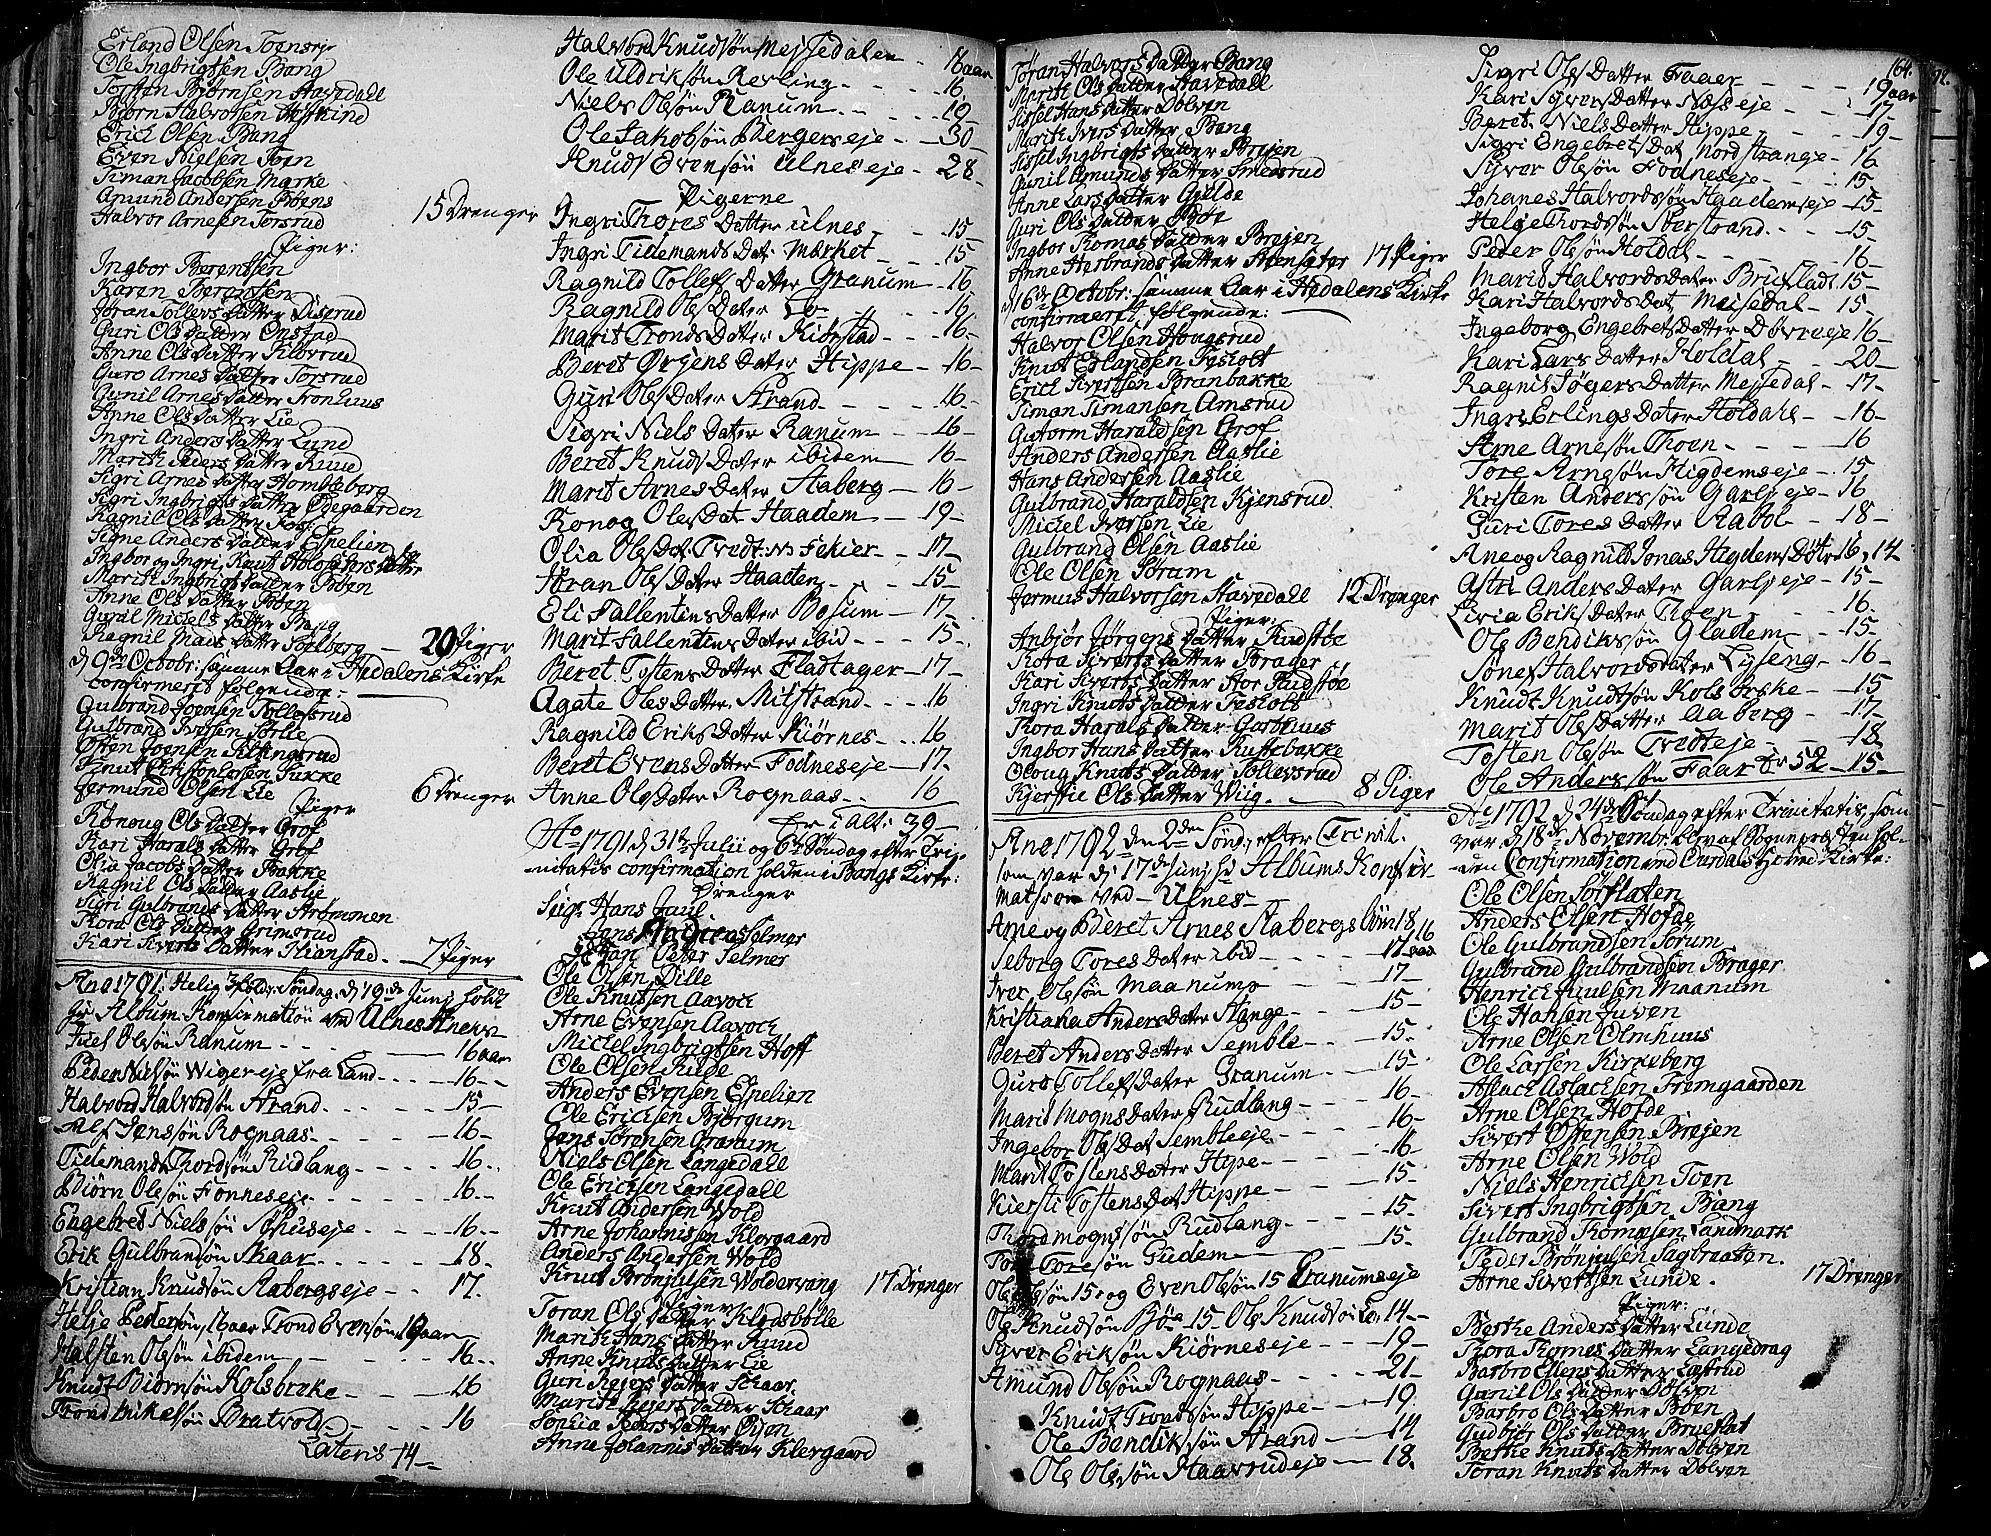 Erland Olsen Toenseje
Ole Ingbrigtsen Bang
Torsten Biørnsen Havedall
Biørn Halvorsen Høfslind
Erich Olsen Bang
Even Nielsen Toen
Timan Jacobsen Marke
Amund Andersen Prøens
Halvor Arnesen Torsrud 15 Drenger
Piger:
Ingbor Berentsen
Karen Berentsen
Jøran Tollevs Datter Disrud
Guri Ols Datter Onstad
Anne Ols Datter Kilbrrud
Guro Arnes Datter Torsrud
Gunil Arnes Datter Fronhuus
Anne Ols Datter Lie
Ingri Anders Datter Lund
Marith Peders Datter Ruud
Sigri Arnes Datter Hombleberg
Sigri Ingbrigts Datter Ødegaarden
Ragnil Ols Datter
Signe Anders Datter Espelien
Ingbor og Ingri Knut Datter
Marith Ingbrigts Datter Prøen
Anne Ols Datter Boen
Guril Michels Datter Bang
Ragnil Mads Datter Solberg — 20 Piger
d 9de Octobr: samme Aar i Hedalens Kirke
confirmeret følgende:
Gulbrand Joensen Tollefsrud
Gulbrand Iversen Sørlie
Østen Joensen
Knut Sukke
Jermund Olsen Lie 6 Drenger
Piger
Ronoug Ols Datter Grof
Kari Harals Datter Grof
Olia Jacobs Datter Bakke
Ragnil Ols Datter Aaslie
Sigri Gulbrands Datter Strømmen
Thora Ols Datter Grimsrud
Kari Siverts Datter Kianstad. — 7 Piger
Ano 1791. Helig 3foldr: Søndag, d 19de Junj holdt
Album Konfirmation ved Ulnes Anex
Juel Olesøn Ranum - - - 16 aar
Peder Nielsøn Wigereje fra Land - - - 16 -
Halvord Halvordsøn Strand - - - 15 -
Alf Jonsøn Rognaas - - - 16 -
Tidemand Thordsøn Rudlang - - - 16 -
Biørn Olesøn Fonneseje - - - 16 -
Engebret Nielssøn Sthuseje - - - 16 -
Erik Gulbransøn Skaar - - - 18 -
Kristian Knudsøn Aabergseje - - 17.
Helje Pedersøn, 16 aar Trond Evensøn 19 aar
Halsten Olesøn ibidem - - - 16 -
Knudt Biørnsøn Kolsbreke - - - 16
Trond Mikelsøn Bratvold - - - 16
Lateris 14 —
Halvord Knudsøn Mejsedalen - 18 aar
Ole Uldriksøn Revling - - - 16
Niels Olesøn Ranum - - - 19 -
Ole Jakobsøn Bergerseje - - 30 -
Knud Evensøn Ulneseje - 28 -
Pigerne
Ingri Thores Datter Ulnes - - - 15
Ingri Tidemands Dat. Mærket - - 15
Ragnild Tollefs Datter Granum - 16
Ragnild Oles Datter Lo - - 16 -
Marit Tronds Datter Kiørstad - - 16 -
Beret Ørjens Dater Hippe - 16 -
Guri Oles Dater Strand - - - 16 -
Sigri Niels Dater Ranum - - 16 -
Beret Knuds Dater ibidem - 16 -
Marit Arnes Dater Aaberg - 16 -
Ronog Oles Dat Haadem - 19 -
Olia Oles Dat. Tredt - - 17 -
Jøran Oles Dater Haaden - - 15 -
Eli Fallentins Dater Bosum - 17 -
Marit Fallentins Dater ibid - - - 15 -
Beret Tostens Datter Fladtager - 17 -
Agate Oles Datter, Midstrand - - - 16
Ragnild Eriks Datter Kiørnes - - - 16
Beret Evens Datter Fodneseje - 17 -
Anne Oles Dater Rognaas - - - 16
Er i alt: 39 —
Ao 1791. d 31te Julii og 6te Søndag efter Tri-
nitatis confirmation holden i Bangs Kirke:
Drenger
Sigr. Hans Juul.
Hans Andreas Selmer
Johan Peter Selmer
Ole Olsen Dille
Ole Knutsen Aavoch
Arne Evensen Aavoch
Michel Ingbrigtsen Hoff
Ole Olsen Rude
Anders Evensen Espelien
Ole Erichsen Bjørgum
Jens Sørensen Granum
Niels Olsen Langedall
Ole Erichsen Langedall
Knut Andersen Wold
Arne Johannissen Klovgaard
Anders Andersen Wold
Knut Brønjulsen Woldervang 17 Drenger
Piger
Toran Ols Datter Klodsbølle
Marith Hans Datter Ruud
Anne Knuts Datter Lie
Guri Rejers Datter Schaar,
Marith Rejers Datter Schaar
Sophia Peders Datter Øijen
Anne Johannis Datter Klevgaard
Jøran Halvors Datter Bang
Marith Ols Datter Havedall
Sissel Hans Datter Dølven
Marith Ivers Datter Bang
Sissel Ingbrigts Datter Brejen
Gunil Amunds Datter Smedsrud
Anne Lars Datter Gjelde
Guri Ols Datter Bøe
Ingbor Thomas Datter Brejen
Anne Herbrands Datter Steensæter 17 Piger
d 16de Octobr: samme Aar i Hedalens Kirke
confirmeret følgende:
Halvor Olsen Hougsrud
Knut Erlandsen Feskolt
Erich Sivertsen Branbakke
Timan Timansen Amsrud
Gutorm Haraldsen Grof
Anders Andersen Aaslie
Hans Andersen Aaslie
Gulbrand Haraldsen Kjensrud
Michel Iversen Lie
Gulbrand Olsen Aaslie
Ole Olsen Sørum
Jermus Halvorsen Havedall 12 Drenger
Piger:
Anbjør Jørgens Datter Rudstøe
Thora Siverts Datter Brager
Kari Siverts Datter Stor Rudstøe
Ingri Knuts Datter Feskolt
Thora Harals Datter Garthuus
Ingbor Hans Datter Rustebakke
Oloug Knuts Datter Tollevsrud
Kjerstie Ols Datter Wiig. — 8 Piger
Ano 1792 den 2den Sønd: efter Trinit.
som var d: 17de Junj Albums Konfir-
mation ved Ulnes —
Arne og Beret Arnes Aabergs børn 18, 16
Seborg Tores Dater ibid - - - 17 aar
Iver Olesøn Maanum - - - 17 -
Kristiana Anders Dater Stange - - - 15 -
Beret Anders Dater Semble - - - 15 -
Guro Tollefs Dater Granum - - - 15 -
Marit Mogns Dater Rudlang - - - 16 -
Ingebor Oles Dat Sembleeje - - - 16 -
Marit Tostens Datter Hipe - - - 16
Kiersti Tostens Dat Hippe - - - 15 -
Thord Mognssøn Rudlang - - - 15 -
Tore Toresøn Gudem - - - 15 -
Ole Olesøn 15 og Even Olesøn 15 Granumseje
Ole Knudsøn Bøe 15 Ole Knudsøn Lo, 14 -
Syver Eriksøn Kiørneseje - - 19 -
Amund Olesøn Rognaas - - - 21 -
Knudt Trondssøn Hippe - - - 19.
Ole Bendikssøn Strand - - 14
Ole Olessøn Haavrudeje - 18.
164.
Sigri Oles Datter Faaer - - - 19 aar
Kari Syvers Datter Næseje - - - 17 -
Beret Niels Datter Hippe - - - 19 -
Sigri Engebrets Dat Nordstrange - 16
Syver Olesøn Fodneseje - - - 15 -
Johanes Halvordssøn Haademseje - 15 -
Helge Thordsøn Sterstrand - - - 15 -
Peder Olesøn Holdal - - - 16 -
Marit Halvords Dater Bruflat 15 -
Kari Halvords Dat Mejsedal - 15 -
Ingeborg Engebrets Datter Døvreeje 16 -
Kari Lars Datter Holdal - 20 -
Ragnil Søgers Datter Mejsedal - 17 -
Ingri Erlings Dater Holdahl - 16 -
Arne Arnesøn Thoen - - - 16
Tore Arnesøn Higdemseje - 15 -
Kristen Anderssøn Garlseje - 16
Guri Tores Datter Rabøl - 18 -
Ane og Ragnild Jonas Higdems Døtre 16, 14
Astri Anders Dater Garlseje - 15 -
Livia Eriks Dater Thoen - - 16.
Ole Bendikssøn Gladem - - 15 -
Søne Halvordsdater Lyseng - 16 -
Knudt Knudtsøn Kolsbreke - - 15
Marit Oles Datter Aaberg - - 17 -
Tosten Olesøn Tredteje - - 18
Ole Anderssøn Faar Er 52 - 15 -
Ao 1792 d 24de Søndag efter Trinitatis, som
var d 18de Novembr. blev af Sognepræsten hol-
den Confirmation ved Ourdals Hoved Kirke:
Ole Olsen Sørflaten
Anders Olsen Hofde
Ole Gulbrandsen Sørum
Gulbrand Gulbrandsen Brager
Henrich Juulsen Maanum
Ole Hansen Juven
Arne Olsen Olmhuus
Ole Larsen Kirkeberg
Aslach Aslachsen Fremgaarden
Arne Olsen Hofde
Sivert Østensen Brejen
Arne Olsen Wold
Niels Henrichsen Toen
Sivert Ingbrigtsen Bang
Gulbrand Thomæsen Landmark
Peder Brønjulsen Sagbraaten.
Arne Sivertsen Lunde. 17 Drenger
Piger:
Berthe Anders Datter Lunde
Thora Thomes Datter Langedrag
Barbro Ellens Datter Løstrud
Gunil Ols Datter Dølven
Barbro Ols Datter Boen
Gudbjør Ols Datter Brueflat
Berthe Knuts Datter Dølven
Toran Knuts Datter Dølven